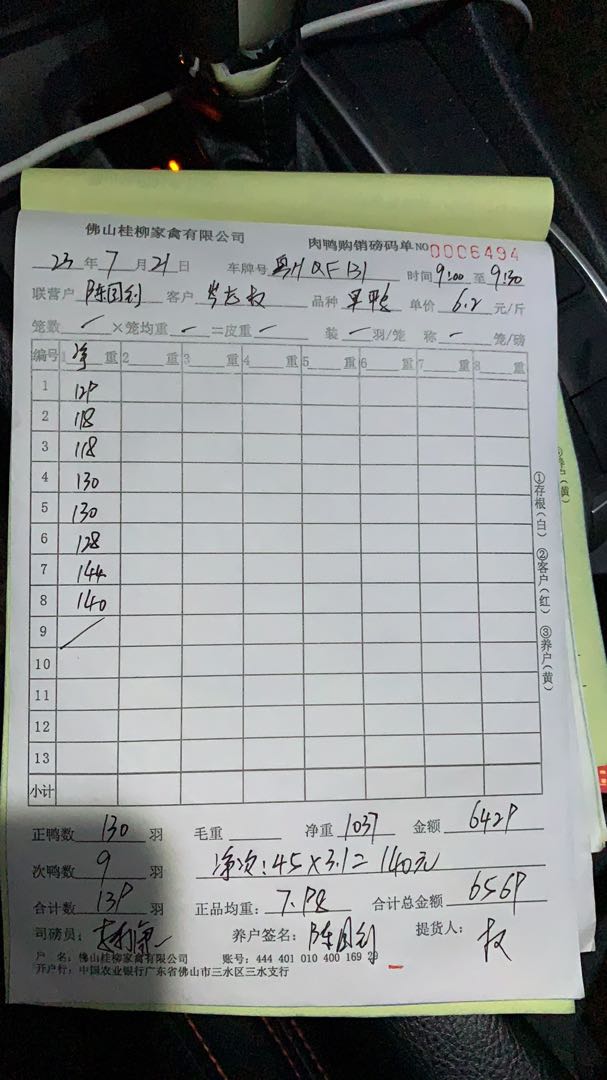 佛山桂柳家禽有限公司 肉鸭购销磅码单 NO 0006494
23 年 7 月 21 日 车牌号 粤H QF131 时间 9:00 至 9:30
联营户 陈国剑 客户 品种 单价 6.2 元/斤
笼数 / ×笼均重 - =皮重 - 装 - 羽/笼 称 - 笼/磅
编号 1 净 重 2 重 3 重 4 重 5 重 6 重 7 重 8 重
1 129
2 118
3 118
4 130
5 130
6 128
7 144
8 140
9 /
10
11
12
13
小计
①存根(白) ②客户(红) ③养户(黄)
正鸭数 130 羽 毛重 净重 1037 金额 6429
次鸭数 9 羽 净次:45×3.1= 140元
合计数 139 羽 正品均重: 7.98 合计总金额 6569
司磅员: 养户签名: 陈国剑 提货人: 权
户 名: 佛山桂柳家禽有限公司 账号: 444 401 010 400 169 29
开户行: 中国农业银行广东省佛山市三水区三水支行